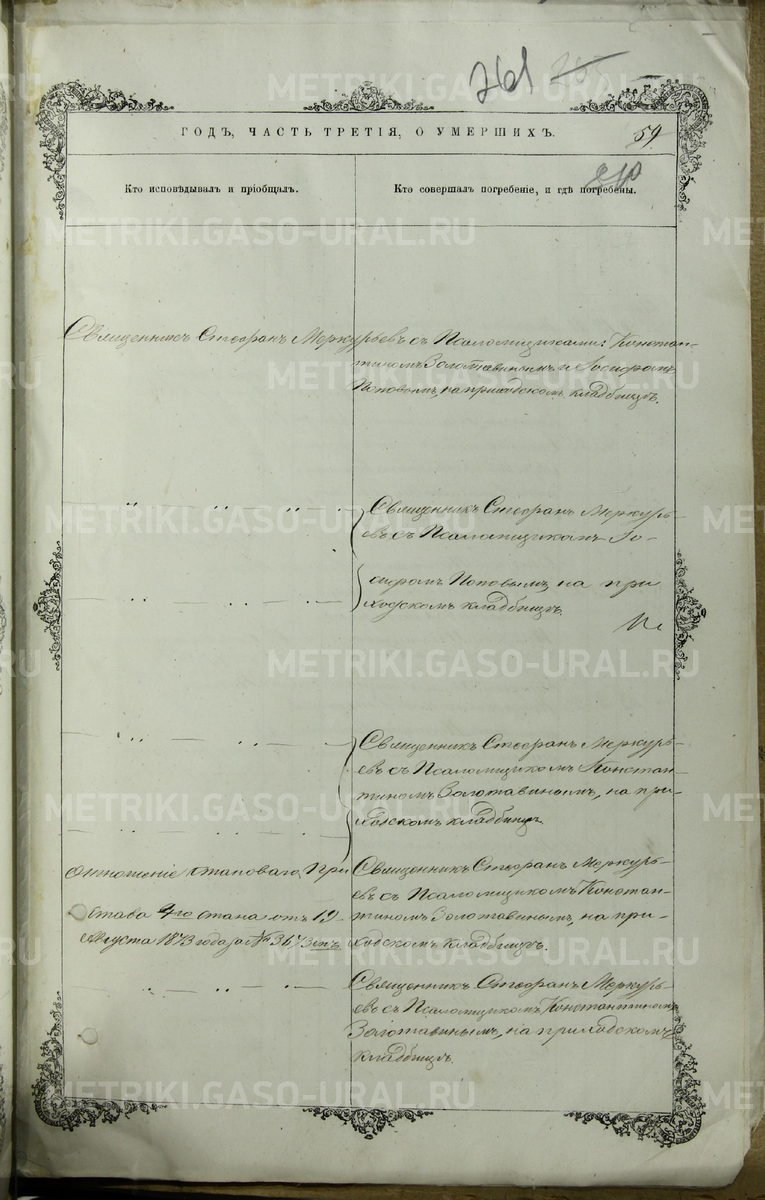 261
ГОДЪ, ЧАСТЬ ТРЕТІЯ, О УМЕРШИХЪ.
59
Кто исповѣдывалъ и пріобщалъ.
Кто совершалъ погребеніе, и гдѣ погребены.
Священникъ Стефанъ Меркурьевъ съ Псаломщиками: Констан-
тиномъ Золотавинымъ и Іосифомъ
Поповымъ, на приходскомъ кладбищѣ.
Священникъ Стефанъ Меркурь-
евъ съ Псаломщикомъ Іо-
сифомъ Поповымъ, на при
ходскомъ кладбищѣ.
Священникъ Стефанъ Меркурь-
евъ съ Псаломщикомъ Констан-
тиномъ Золотавинымъ, на при-
ходскомъ кладбищѣ.
Отношеніе Становаго При
става 4го стана отъ 19
Августа 1873 года за № 3673омъ.
Священникъ Стефанъ Меркурь-
евъ съ Псаломщикомъ Констан-
тиномъ Золотавинымъ, на при-
ходскомъ кладбищѣ.
Священникъ Стефанъ Меркурь-
евъ съ Псаломщикомъ Константиномъ
Золотавинымъ, на приходскомъ
кладбищѣ.
METRIKI.GASO-URAL.RU